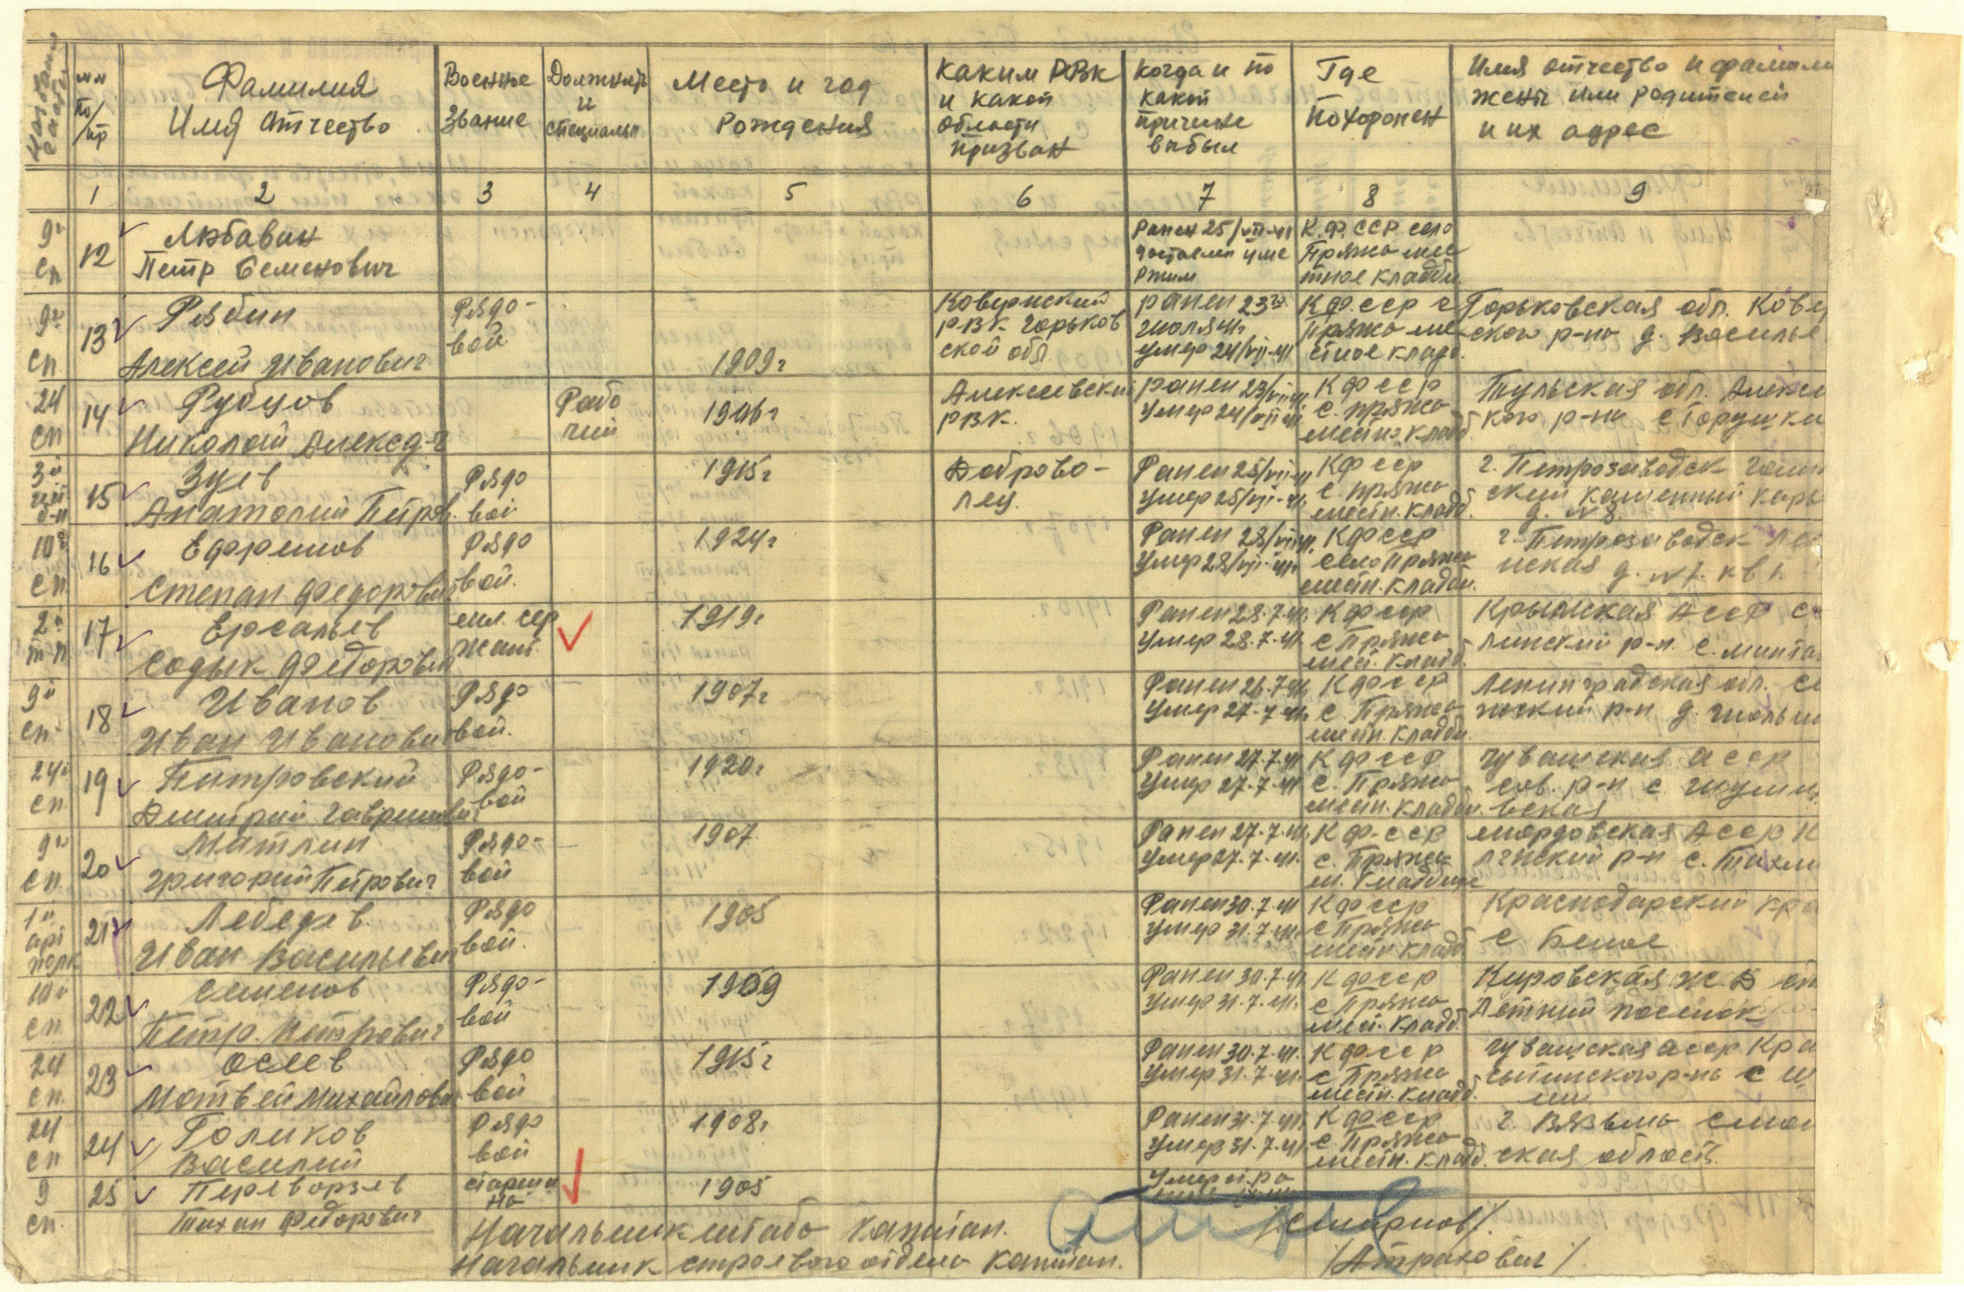 №№ п/пр
Фамилия
Имя отчество
Военное
звание
Должность
и
специальн
Место и год
рождения
Каким РВК
и какой
области
призван
Когда и по
какой
причине
выбыл
Где
похоронен
Имя отчество и фамили
жены или родителей
и их адрес
1 2 3 4 5 6 7 8 9
9й
сп
12
Любавин
Петр Семенович
Ранен 25/VII-41
доставлен уме
ршим
К.Ф.ССР. село
Пряжа мес
тное кладби
9й
сп
13
Рябин
Алексей Иванович
Рядо-
вой
1909г
Ковернский
РВК Горьков
ской обл.
ранен 23го
июля 41г
умер 24/VII-41
К.Ф.ССР с
Пряжа ме
стное кладб.
Горьковская обл. Ковер
ского р-на д. Василье
24
сп
14
Рубцов
Николай Александ-ч
Рабо
чий
1906г
Алексеевский
РВК.
ранен 23/VII-41
умер 24/VII-41
КФССР
с. Пряжа
местно. кладб
Тульская обл. Алексе
кого р-на с Горушки
3й
б-н
15
Зуев
Анатолий Петров.
Рядо
вой
1915г
Доброво-
лец.
Ранен 25/VII-41
умер 25/VII-41
КФССР
с. Пряжа
местн. кладб.
г. Петрозаводск
ский каменный карь
д. №8
10й
сп
16
Ефремов
Степан Федорович
Рядо
вой.
1924г
Ранен 28/VII-41
Умер 28/VII-41
КФССР
село Пряжа
местн. кладби.
г. Петрозаводск Ле
нская д. №7. кв 1.
2й
т-п
17
Ерсальев
Содык Федорович
мл. сер
жант
1919г
Ранен 28.7.41.
Умер 28.7.41.
КФССР
с Пряжа
мест. кладб.
Крымская АССР С
линский р-н. с.
9й
сп.
18
Иванов
Иван Иванович
Рядо
вой.
1907г
Ранен 26.7.41.
Умер 27.7.41.
КФССР
с. Пряжа
местн. кладби.
Ленинградская обл. Се
жский р-н д.
24й
сп
19
Питровский
Дмитрий Гаврилови
Рядо-
вой
1920г
Ранен 27.7.41
Умер 27.7.41
КФССР
с. Пряжа
местн. кладби.
Чувашская АССР
сов. р-н с Шуми
вская
9й
сп
20
Митлин
Григорий Петрович
Рядо-
вой
1907
Ранен 27.7.41.
Умер 27.7.41.
КФССР
с. Пряжа
м. кладбище
Мордовская АССР К
лгинский р-н с.
1й
арт
полк
21
Лебедев
Иван Васильевич
Рядо
вой.
1905
Ранен 30.7.41
умер 31.7.41.
КФССР
с Пряжа
местн кладб
Краснодарский кра
с Белое
10й
сп
22
Семенов
Петр. Петрович
Рядо-
вой
1909
Ранен 30.7.41.
умер 31.7.41.
КФССР
с Пряжа
мест. кладб.
Кировская ж.д ст
Летний поселок
24
сп
23
Осеев
Мотвей Михайлови
Рядо
вой
1915г
Ранен 30.7.41.
умер 31.7.41.
КФССР
с Пряжа
местн. кладб.
Чувашская АССР Кра
с Ш
24
сп
24
Голиков
Василий
Рядо
вой
1908г
Ранен 31.7.41.
умер 31.7.41.
КФССР
с. Пряжа
местн. кладб.
г. Вязьма Смол
ская область
9
сп.
25
Переворзев
Тихан Федорович
старши
на
1905
Умер от ра
Начальник штаба Капитан. /Смирнов/.
Начальник строевого отдела Капитан. /Атрахович/